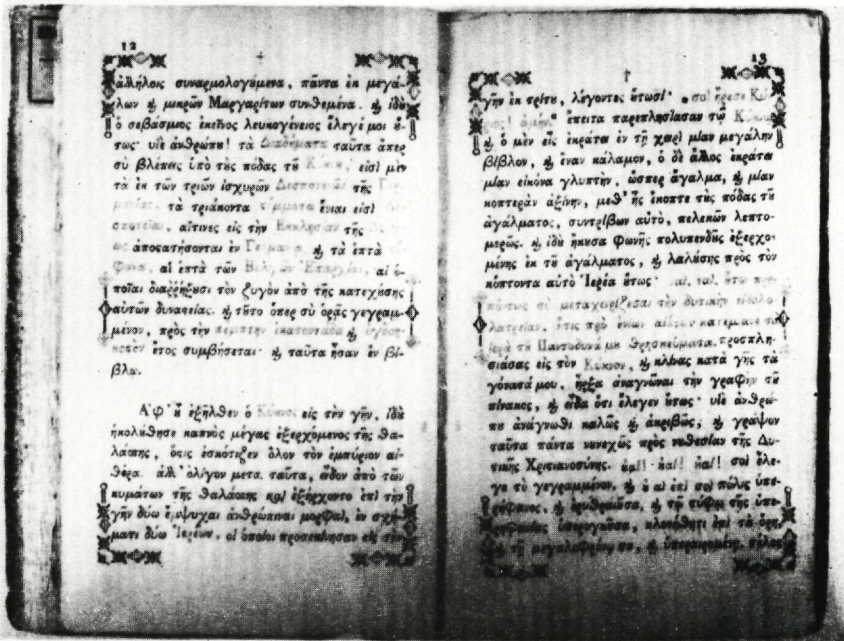 12
ἀλλήλοις συναρμολογούμενα, πάντα ἐκ μεγά-
λων ϗ μικρῶν Μαργαρίτων συνθεμένα. ϗ ἰδοὺ
ὁ σεβάσμιος ἐκεῖνος λευκογένειος ἔλεγέ μοι ὅ-
τως· υἱὲ ἀνθρώπου! τὰ Διαδήματα ταῦτα ἅπερ
σὺ βλέπεις ὑπὸ τοὺς πόδας τοῦ εἰσὶ μὲν
τὰ ἐκ τῶν τριῶν ἰσχυρῶν τῆς
τὰ τριάκοντα ἔνιαι εἰσὶ
αἵτινες εἰς τὴν Ἐκκλησίαν τῆς
ἀποσατήσονται ἐν ϗ τὰ ἑπτὰ
αἱ ἑπτὰ τῶν αἱ ὁ-
ποῖαι διαῤῥήξουσι τὸν ζυγὸν ἀπὸ τῆς κατεχούσης
αὐτῶν δυναστείας. ϗ τοῦτο ὅπερ σὺ ὁρᾷς γεγραμ-
μένον, πρὸς τὴν πέμπτην ἑκατοντάδα ϗ ὀγδοη-
κοστὸν ἔτος συμβήσεται· ϗ ταῦτα ἦσαν ἐν βί-
βλῳ.
Ἀφ' οὗ ἐξῆλθεν ὁ Κύκνος εἰς τὴν γῆν, ἰδοὺ
ἠκολούθησε καπνὸς μέγας ἐξερχόμενος τῆς θα-
λάσσης, ὅστις ἐσκότιζεν ὅλον τὸν ἐμπύριον αἰ-
θέρα. ἀλλ' ὀλίγον μετὰ ταῦτα, εἶδον ἀπὸ τῶν
κυμάτων τῆς θαλάσσης καὶ ἐξήρχοντο ἐπὶ τὴν
γῆν δύω ἔμψυχαι ἀνθρώπιναι μορφαί, ἐν σχή-
ματι δύω Ἱερέων, οἱ ὁποῖοι προσεκύνησαν εἰς τὴν
13
γῆν ἐκ τρίτου, λέγοντες οὕτωσί· σοὶ ἤρεσε
ἀμήν" ἔπειτα παρεπλησίασαν τῷ Κύκνῳ
ϗ ὁ μὲν εἷς ἐκράτει ἐν τῇ χειρὶ μίαν μεγάλην
βίβλον, ϗ ἕναν κάλαμον, ὁ δὲ ἄλλος ἐκράτει
μίαν εἰκόνα γλυπτὴν, ὥσπερ ἄγαλμα, ϗ μίαν
κοπτερὰν ἀξίνην, μεθ' ἧς ἔκοπτε τοὺς πόδας τοῦ
ἀγάλματος, συντρίβων αὐτὸ, πελεκῶν λεπτο-
μερῶς. ϗ ἰδοὺ ἤκουσα φωνῆς πολυπενθοῦς ἐξερχο-
μένης ἐκ τοῦ ἀγάλματος, ϗ λαλούσης πρὸς τὸν
κόπτοντα αὐτὸ Ἱερέα οὕτως· ναὶ, ναὶ, οὕτω πρε-
πόντως σὺ μεταχειρίζεσαι τὴν δυτικὴν εἰδωλο-
λατρείαν,
ἱερὰ τοῦ Παντοδυνάμου θρησκεύματα. προσπλη-
σιάσας εἰς τὸν Κύκνον, ϗ κλίνας κατὰ γῆς τὰ
γόνατά μου, ἤρξα ἀναγνῶναι τὴν γραφὴν τοῦ
πίνακος, ϗ εἶδα ὅτι ἔλεγεν οὕτως· υἱὲ ἀνθρώ-
που ἀνάγνωθι καλῶς ϗ ἀκριβῶς, ϗ γράψον
ταῦτα πάντα συνεχῶς πρὸς νουθεσίαν τῆς Δυ-
τικῆς Χριστιανοσύνης. οὐαὶ! οὐαὶ! οὐαὶ! σοὶ ἔλε-
γε τὸ γεγραμμένον, ϗ οὐαὶ ἐπὶ σοὶ πόλις ὑπε-
ρήφανος, ϗ ϗ τῷ τύφῳ τῆς ὑπε-
ρηφανείας ἐπὶ τὰ ὄρη,